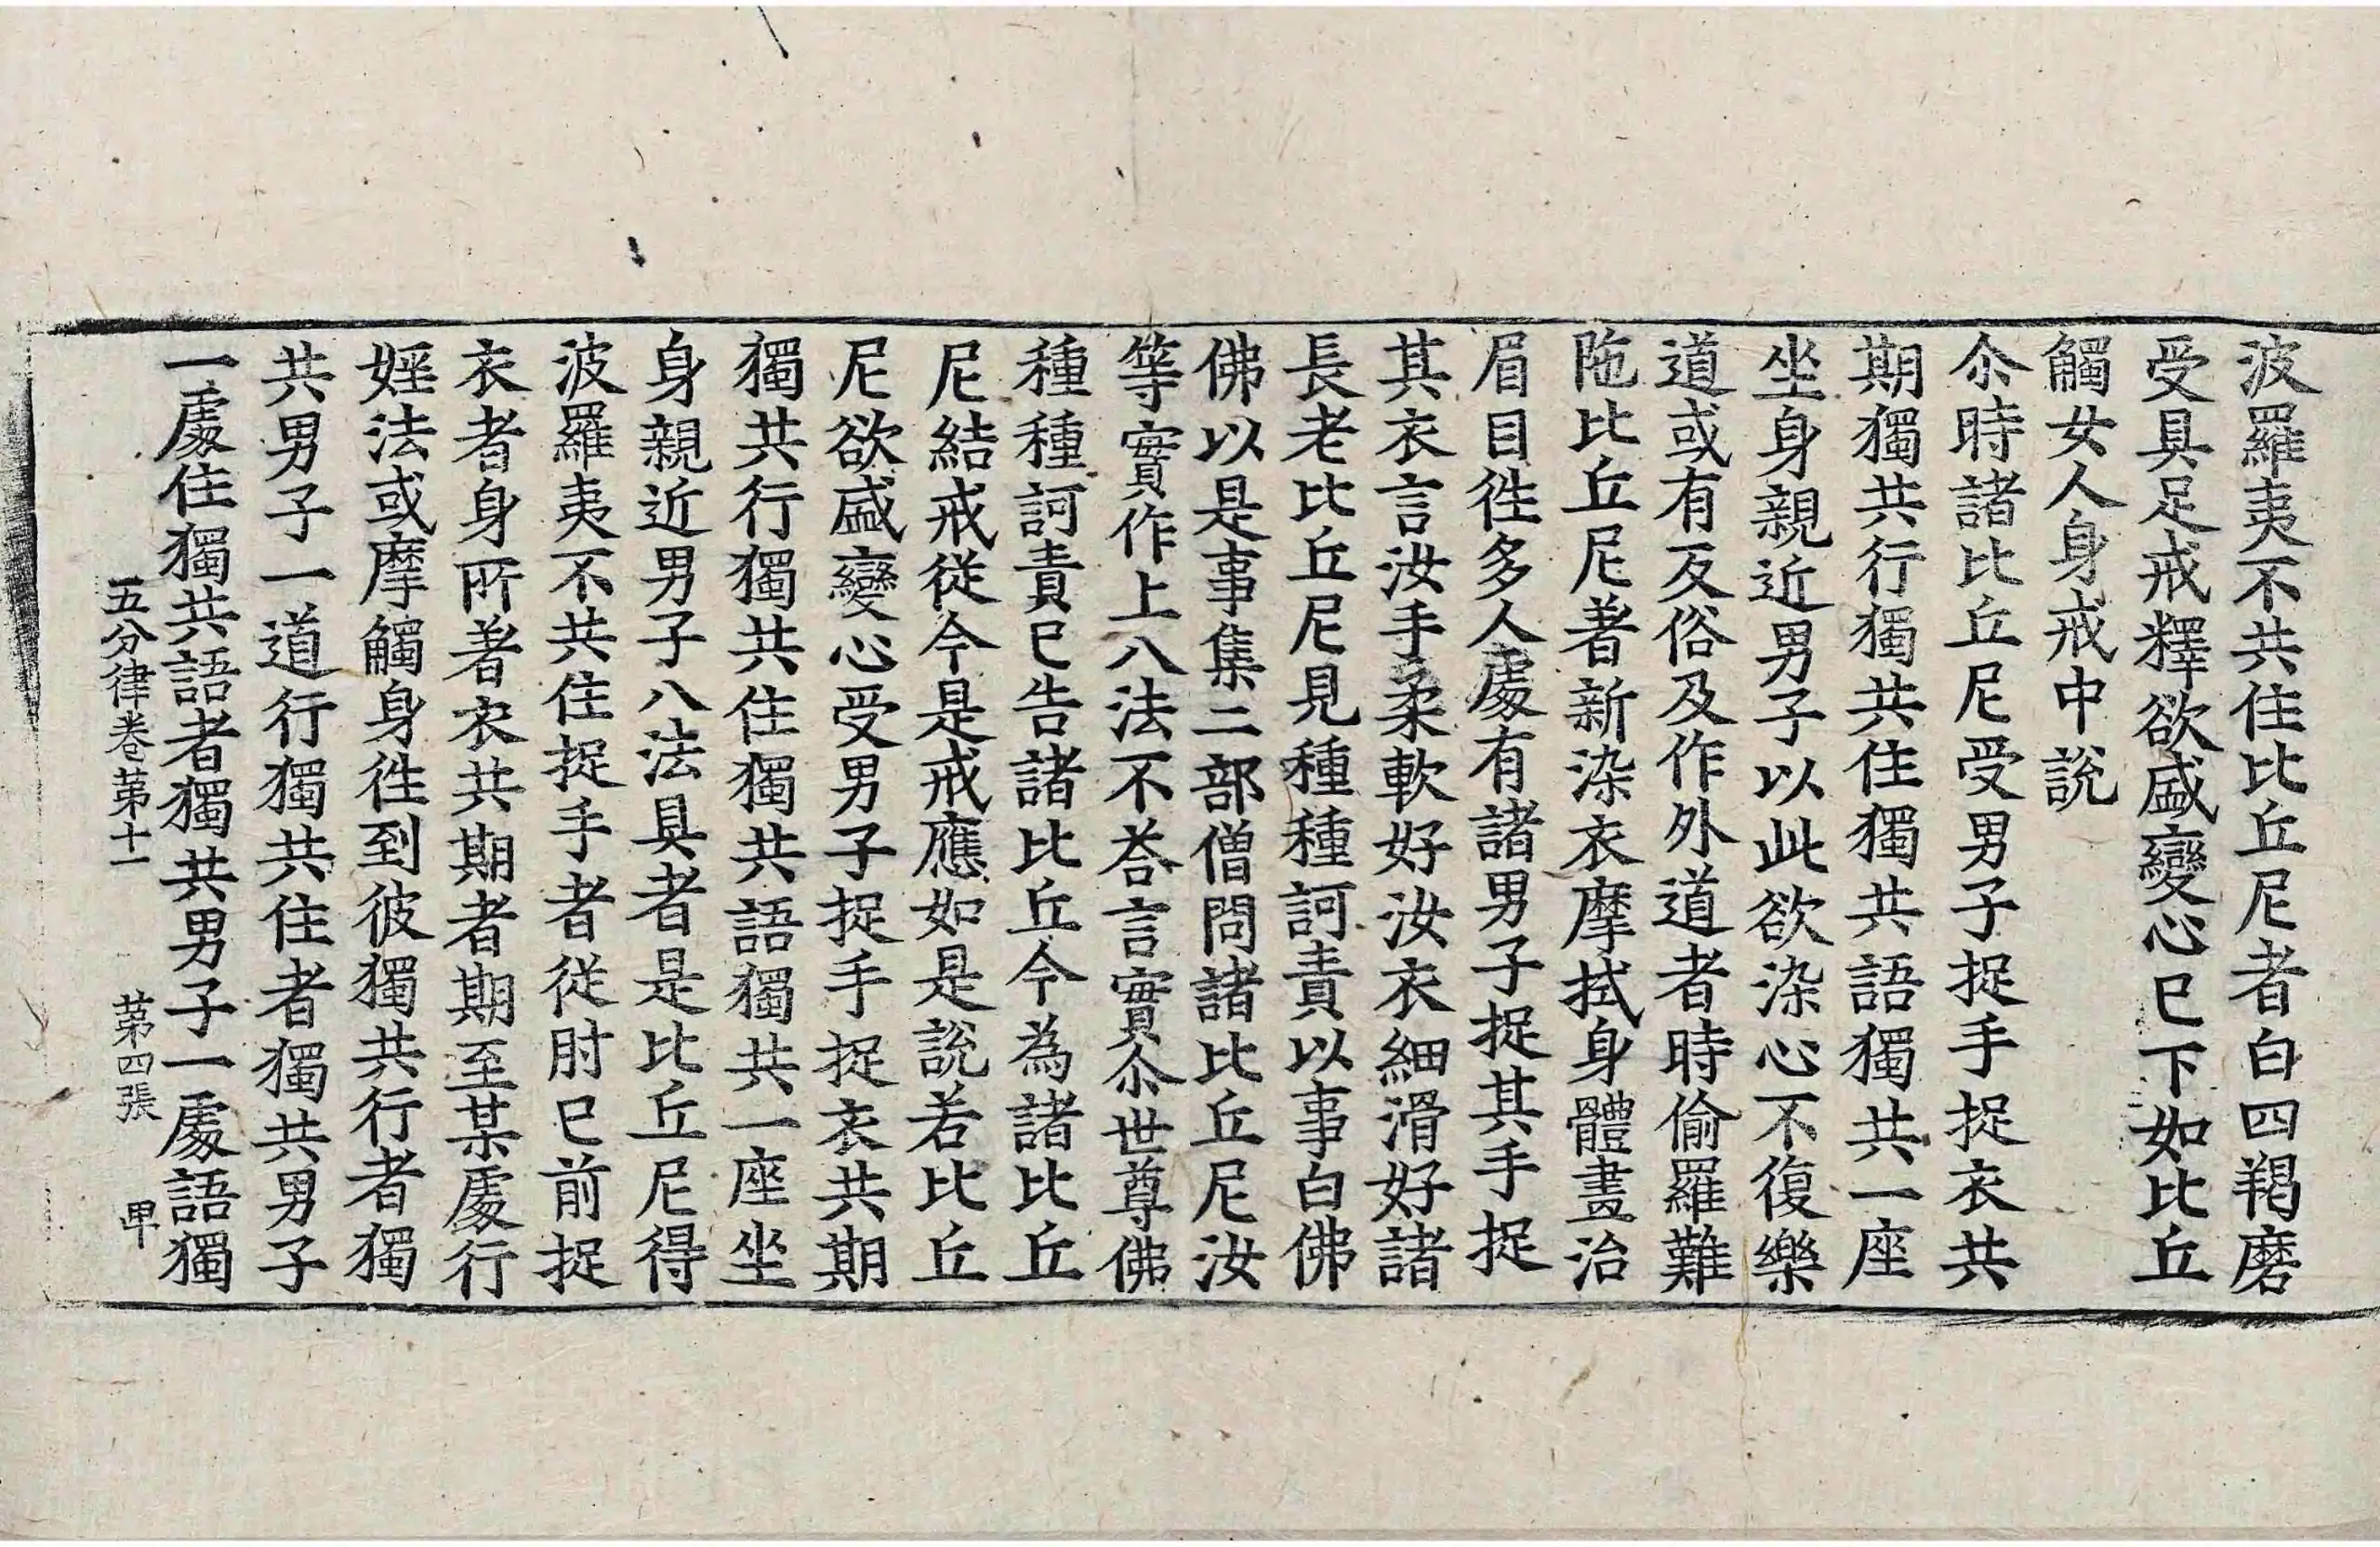 波羅夷不共住比丘尼者白四羯磨
受具足戒釋欲盛變心巳下如比丘
觸女人身戒中說
尒時諸比丘尼受男子捉手捉衣共
期獨共行獨共住獨共語獨共一座
坐身親近男子以此欲染心不復樂
道或有反俗及作外道者時偷羅難
陁比丘尼著新染衣摩拭身體畫治
眉目徃多人處有諸男子捉其手捉
其衣言汝手柔軟好汝衣細滑好諸
長老比丘尼見種種訶責以事白佛
佛以是事集二部僧問諸比丘尼汝
等實作上八法不荅言實尒世尊佛
種種訶責巳告諸比丘今為諸比丘
尼結戒從今是戒應如是說若比丘
尼欲盛變心受男子捉手捉衣共期
獨共行獨共住獨共語獨共一座坐
身親近男子八法具者是比丘尼得
波羅夷不共住捉手者從肘巳前捉
衣者身所著衣共期者期至某處行
婬法或摩觸身徃到彼獨共行者獨
共男子一道行獨共住者獨共男子
一處住獨共語者獨共男子一處語獨
五分律卷第十一 第四張 甲